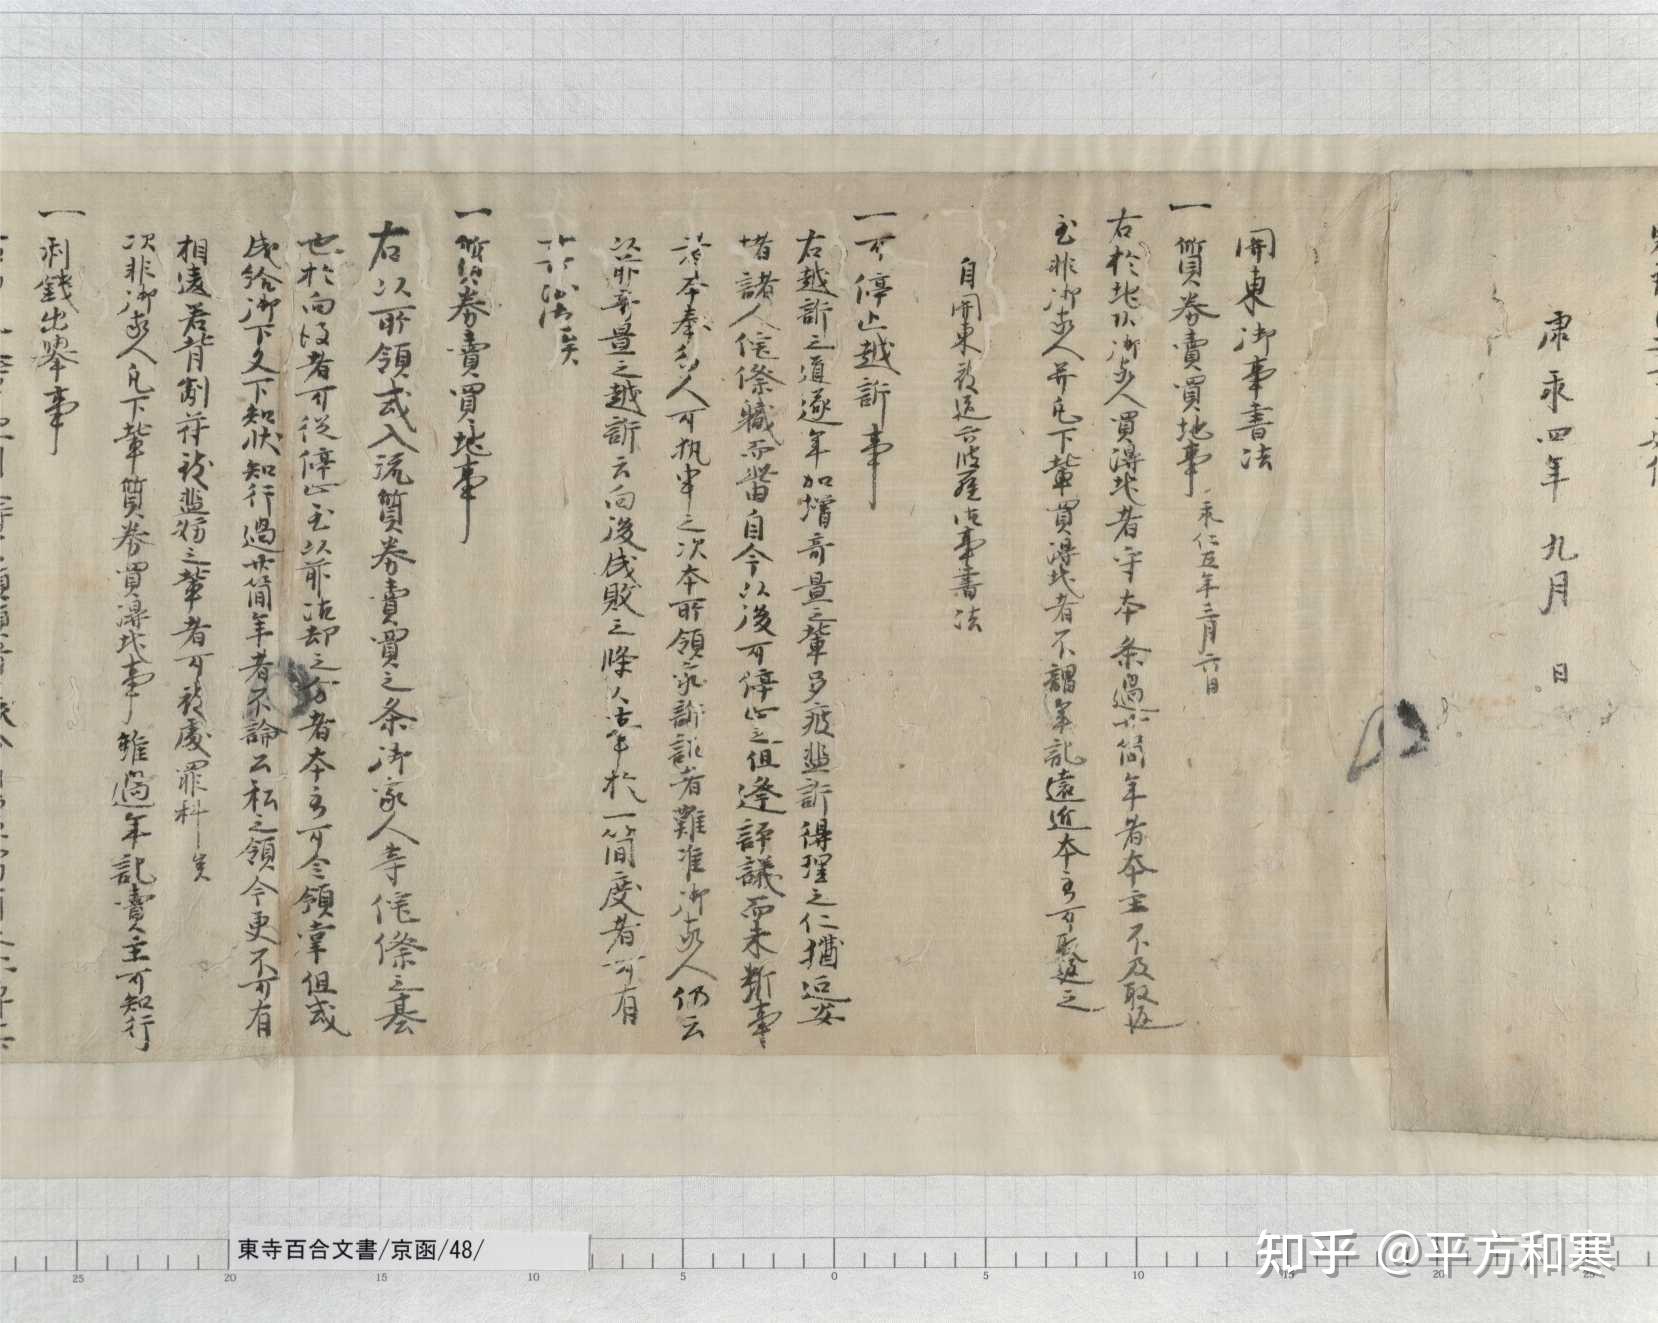 康永四年九月 日
関東御事書法
一 質券賣買地事 永仁五年三月六日
右於地頭御家人買得地者守本条過廿箇年者本主不及取返
至非御家人并凡下輩買得地者不謂年記遠近本主可取返之
自関東被送六波羅御事書法
一可停止越訴事
右越訴之道逐年加增弃置之輩多疲濫訴得理之仁猶迴安
堵諸人侘傺職而此由自今以後可停止之但逢評議而未断事
者本奉行人可執申之次本所領家訴訟者難准御家人仍云
以前弃置之越訴云向後成敗之條々事於一箇度者可有
其沙汰矣
一質券賣買地事
右以所領或入流質券賣買之条御家人等侘傺之基
也於向後者可從停止至以前沽却之分者本主可令領掌但或
成給御下文下知状知行過廿箇年者不論公私之領今更不可有
相違若背制符致濫妨之輩者可被處罪科矣
次非御家人凡下輩質券買得地事雖過年記賣主可知行
一利錢出舉事
東寺百合文書/京函/48/
25 20 15 10 5 0 5 10 15 20 25
知乎 @平方和寒